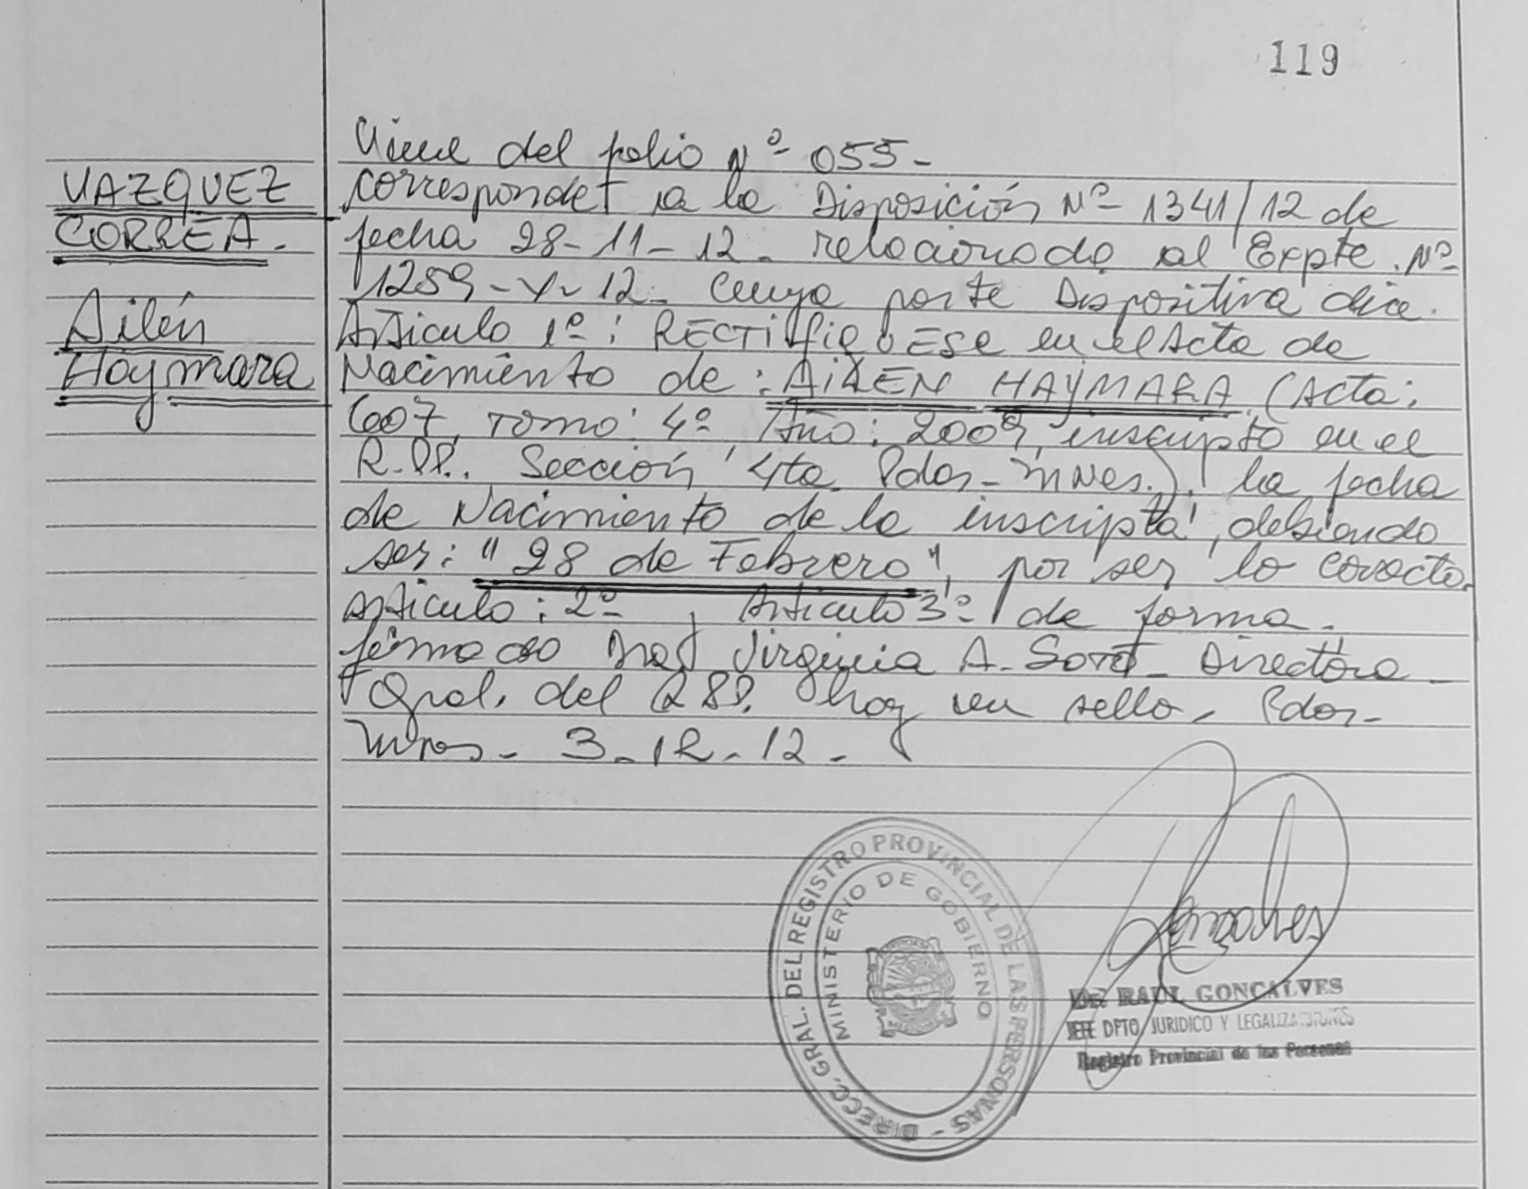 119
VAZQUEZ
CORREA.
Ailén
Haymara
Viene del folio Nº 055-
corresponde a la Disposición Nº 1341/12 de
fecha 28-11-12. relacionado al Expte. Nº
1259-V-12. Cuya parte Dispositiva dice.
Articulo 1º: RECTifiqUESE en el Acta de
Nacimiento de: AiLEN HAYMARA (Acta:
607, Tomo: 4º Año: 2009, inscripto en el
R.PP. Sección 4ta Pdas-Mnes.), la fecha
de Nacimiento de la inscripta, debiendo
ser: "28 de Febrero", por ser lo correcto.
Articulo: 2º, Articulo 3º de forma.
firmado Virginia A. Directora
Gral. del RPP. hay un sello. Pdas-
Mnes- 3-12-12-
DIRECC. GRAL. DEL REGISTRO PROVINCIAL DE LAS PERSONAS -
MINISTERIO DE GOBIERNO
Dr. RAUL GONCALVES
JEFE DPTO JURIDICO Y LEGALIZACIONES
Registro Provincial de las Personas